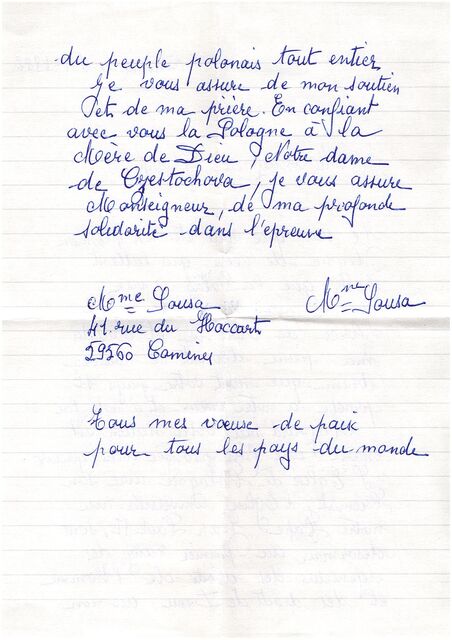 du peuple polonais tout entier
Je vous assure de mon soutien
et de ma prière. En confiant
avec vous la Pologne à la
Mère de Dieu, Notre dame
de Czestochova, je vous assure
Monseigneur, de ma profonde
solidarité dans l'epreuve
Mme Sousa
Mme Sousa
41 rue du
59560 Comines
Tous mes vœuse de paix
pour tous les pays du monde